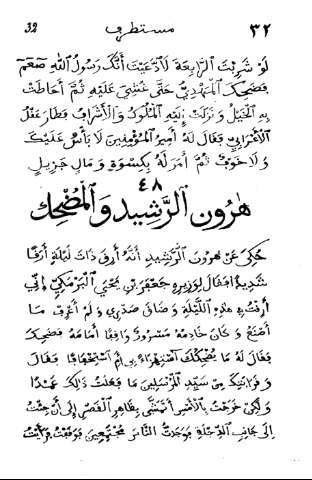 ٣٢ مستطرف 32
لَوْ شَرِبْتَ ٱلرَّابِعَةَ لَادَّعَيْتَ أَنَّكَ رَسُولُ ٱللّٰهِ صَعَم
فَضَحِكَ ٱلْمَهْدِيُّ حَتَّى غُشِيَ عَلَيْهِ ثُمَّ أَحَاطَتْ
بِهِ ٱلْخَيْلُ وَنَزَلَتْ إِلَيْهِ ٱلْمُلُوكُ وَٱلْأَشْرَافُ فَطَارَ عَقْلُ
ٱلْأَعْرَابِيِّ فَقَالَ لَهُ أَمِيرُ ٱلْمُؤْمِنِينَ لَا بَأْسَ عَلَيْكَ
وَلَا خَوْفَ ثُمَّ أَمَرَ لَهُ بِكِسْوَةٍ وَمَالٍ جَزِيلٍ
٤٨
هٰرُون ٱلرَّشِيد وَٱلْمُضْحِك
حُكِيَ عَنْ هٰرُونَ ٱلرَّشِيدِ أَنَّهُ أَرِقَ ذَاتَ لَيْلَةٍ أَرَقًا
شَدِيدًا فَقَالَ لِوَزِيرِهِ جَعْفَرِ بْنِ يَحْيَى ٱلْبَرْمَكِيِّ إِنِّي
أَرِقْتُ فِي هٰذِهِ ٱللَّيْلَةِ وَضَاقَ صَدْرِي وَلَمْ أَعْرِفْ مَا
أَصْنَعُ وَكَانَ خَادِمُهُ مَسْرُورٌ وَاقِفًا أَمَامَهُ فَضَحِكَ
فَقَالَ لَهُ مَا يُضْحِكُكَ ٱسْتِهْزَاءً بِي أَمِ ٱسْتِخْفَافًا فَقَالَ
وَقَرَابَتِكَ مِنْ سَيِّدِ ٱلْمُرْسَلِينَ مَا فَعَلْتُ ذٰلِكَ عَمْدًا
وَلٰكِنْ خَرَجْتُ بِٱلْأَمْسِ أَتَمَشَّى بِظَاهِرِ ٱلْقَصْرِ إِلَى أَنْ جِئْتُ
إِلَى جَانِبِ ٱلدِّجْلَةِ فَوَجَدْتُ ٱلنَّاسَ مُجْتَمِعِينَ فَوَقَفْتُ فَرَأَيْتُ